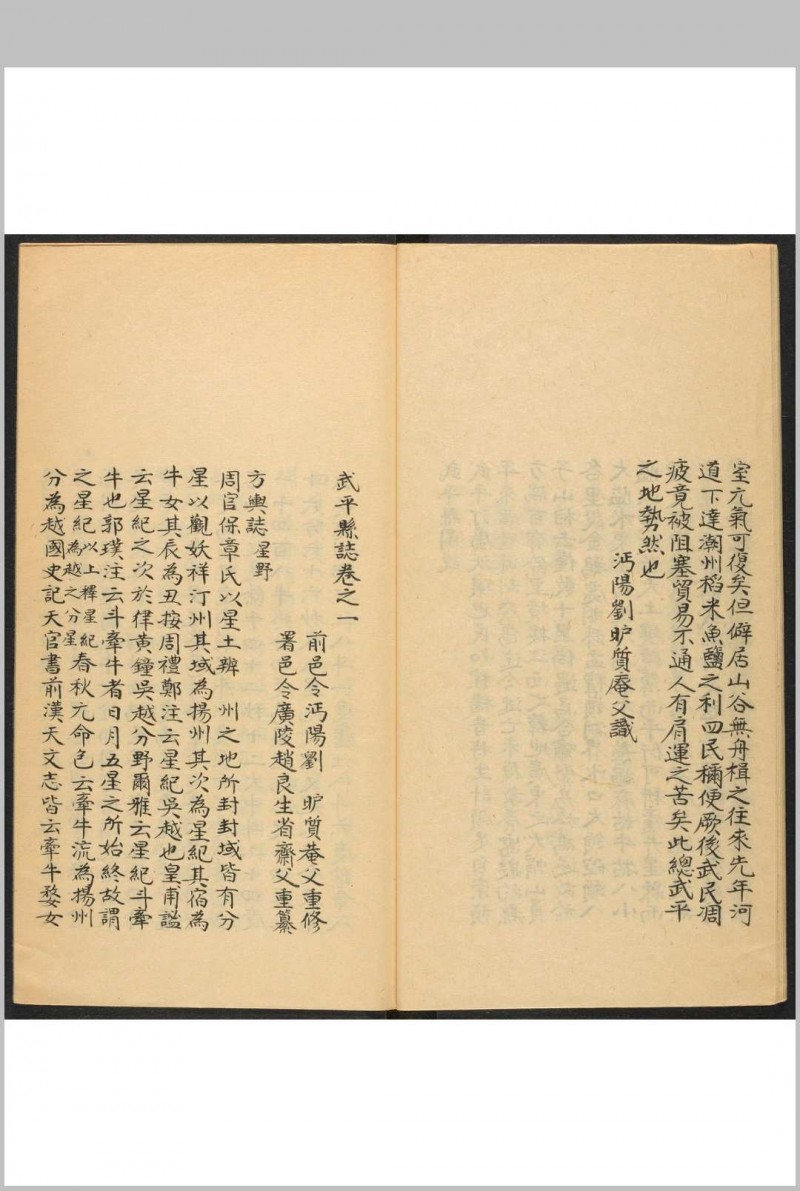 室元氣可復矣但僻居山谷無舟楫之往來先年河
道下達潮州稻米魚鹽之利四民稱便厥後武民凋
疲竟被阻塞貿易不通人有肩運之苦矣此總武平
之地勢然也
沔陽劉旷質庵父識
武平縣誌卷之一
前邑令沔陽劉 旷質菴父重修
署邑令廣陵趙良生省齋父重纂
方輿誌 星野
周官保章氏以星土辨 州之地所封封域皆有分
星以觀妖祥汀州其域為揚州其次為星紀其宿為
牛女其辰為丑按周禮鄭注云星紀吳越也皇甫謐
云星紀之次於律黃鐘吳越分野爾雅云星紀斗牽
牛也郭璞注云斗牽牛者日月五星之所始終故謂
之星紀以上釋星紀為越之分星春秋元命包云牽牛流為揚州
分為越國史記天官書前漢天文志皆云牽牛婺女